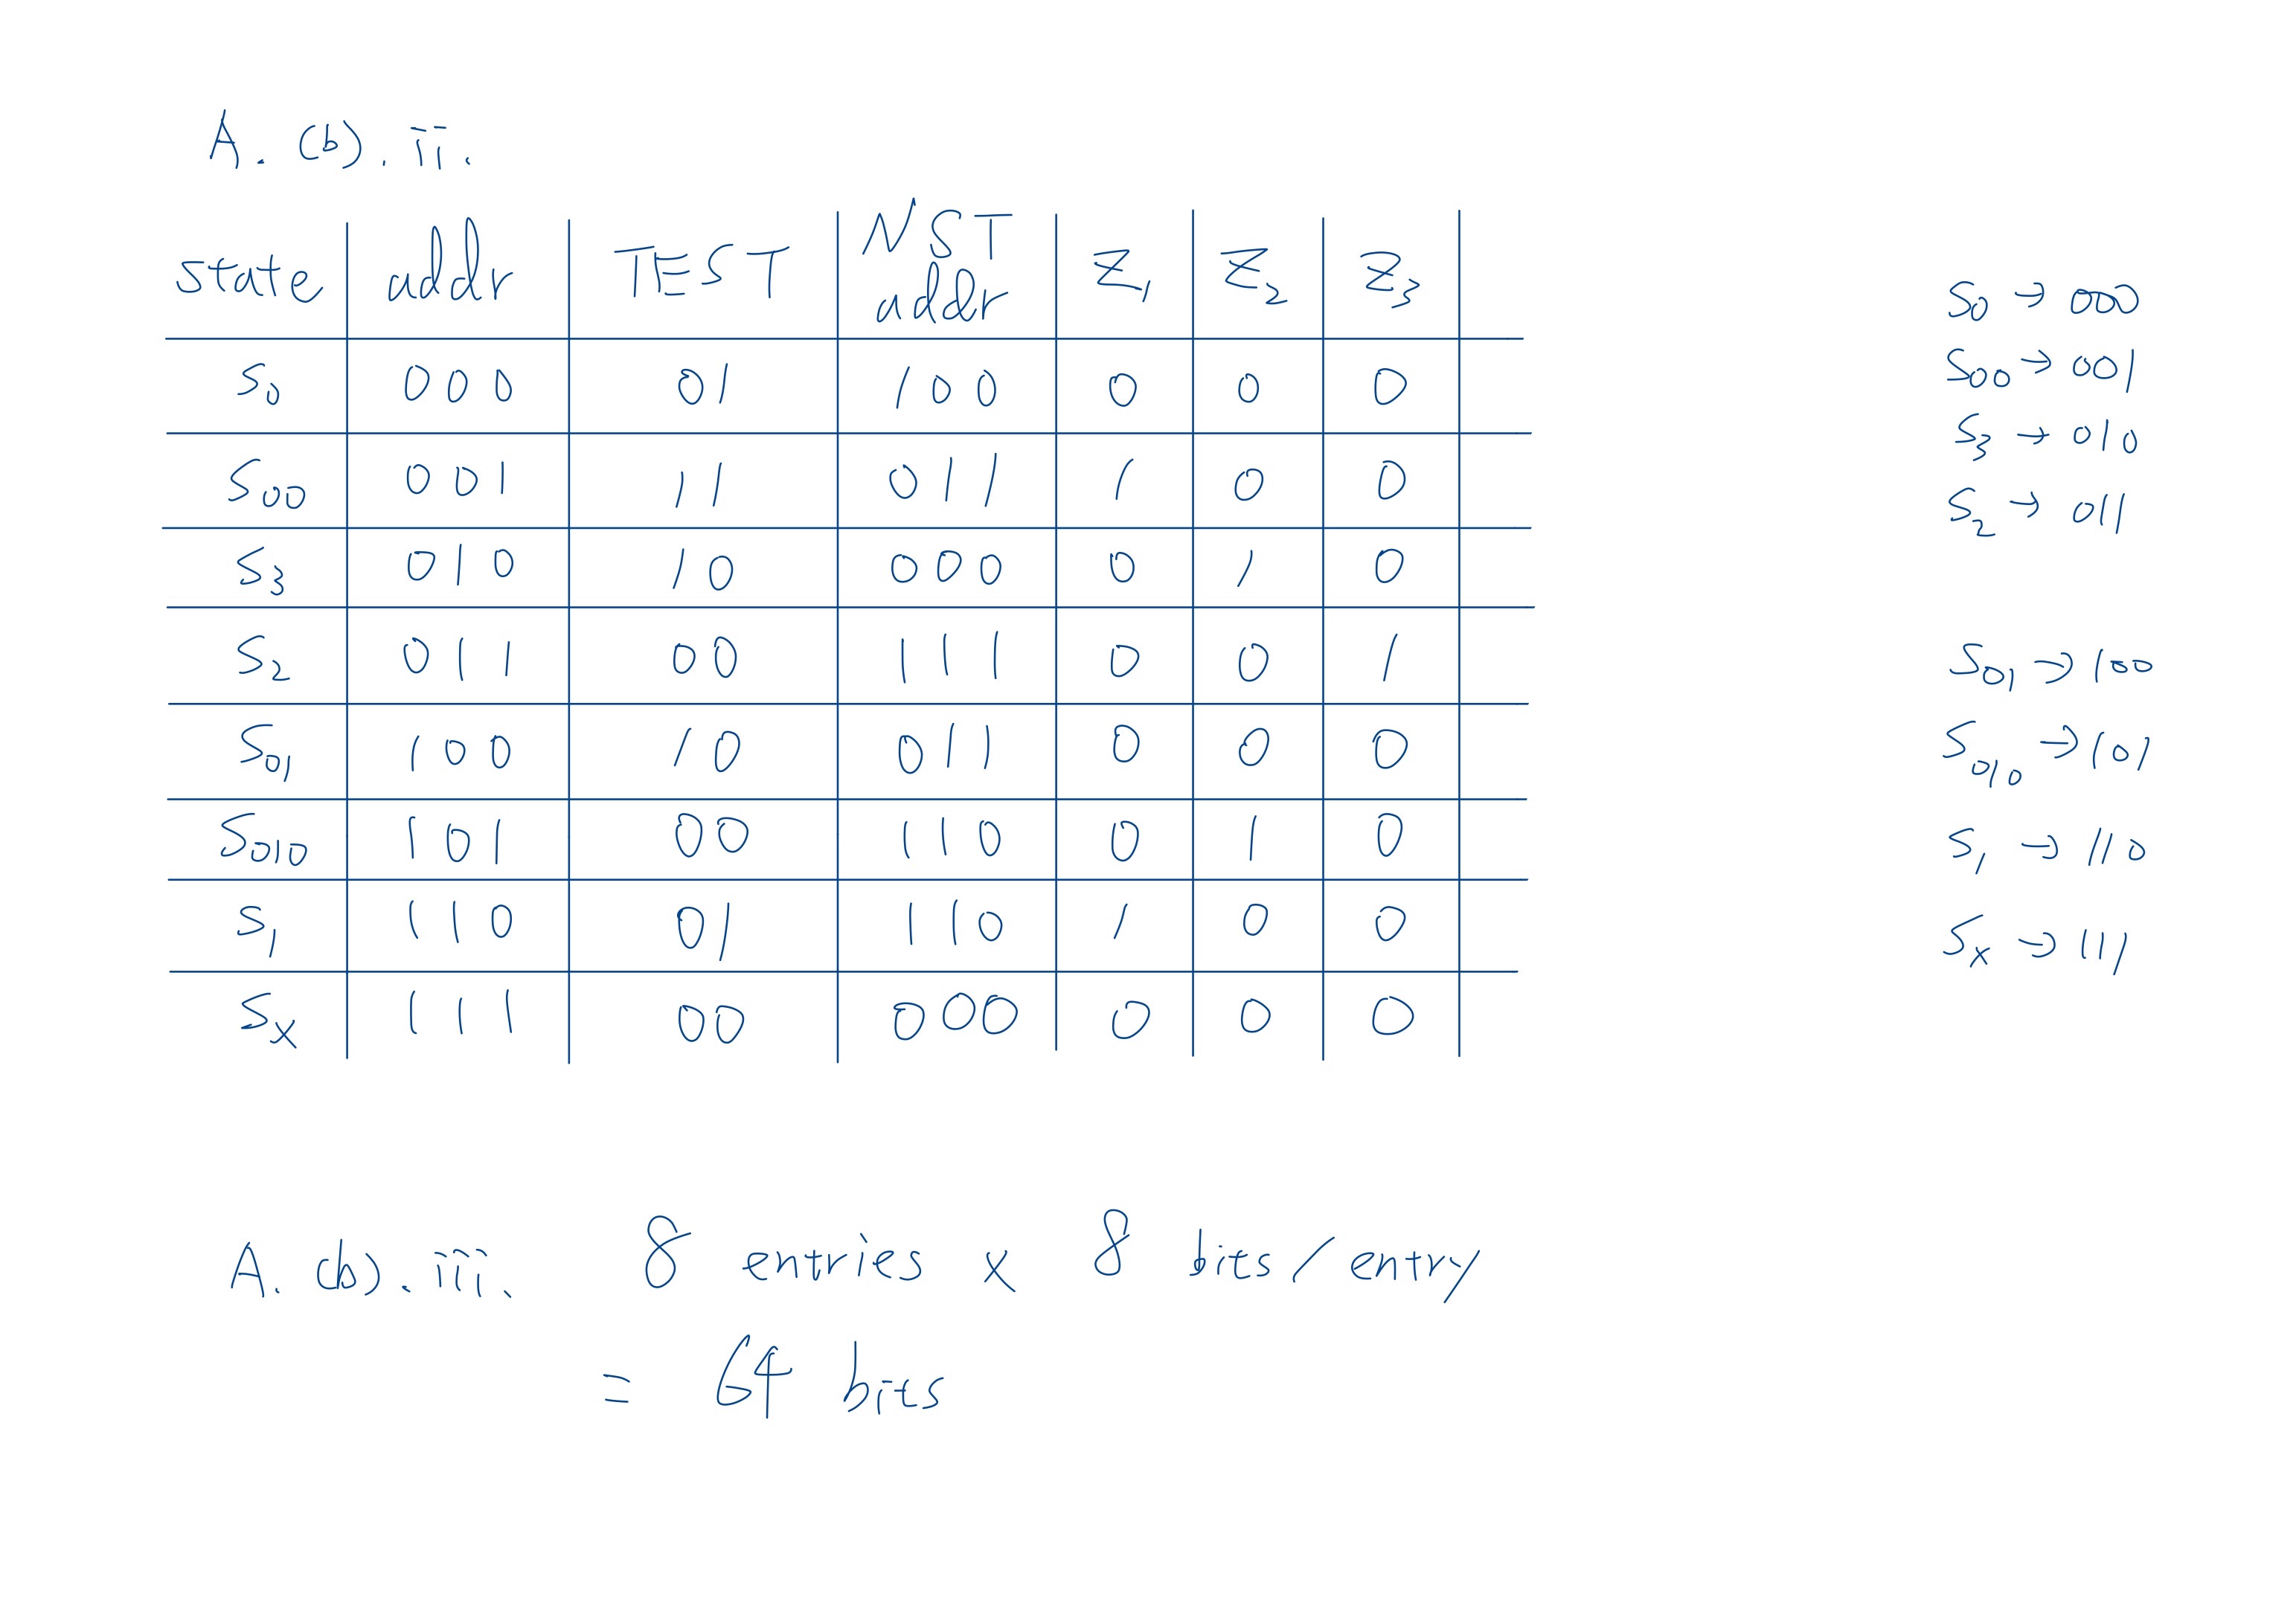 A. (b). ii.
state addr TEST NST addr Z1 Z2 Z3
S0 000 01 100 0 0 0
S00 001 11 011 1 0 0
S3 010 10 000 0 1 0
S2 011 00 111 0 0 1
S01 100 10 011 0 0 0
S010 101 00 110 0 1 0
S1 110 01 110 1 0 0
Sx 111 00 000 0 0 0
S0 → 000
S00 → 001
S3 → 010
S2 → 011
S01 → 100
S010 → 101
S1 → 110
Sx → 111
A. (b). iii. 8 entries x 8 bits/entry
= 64 bits